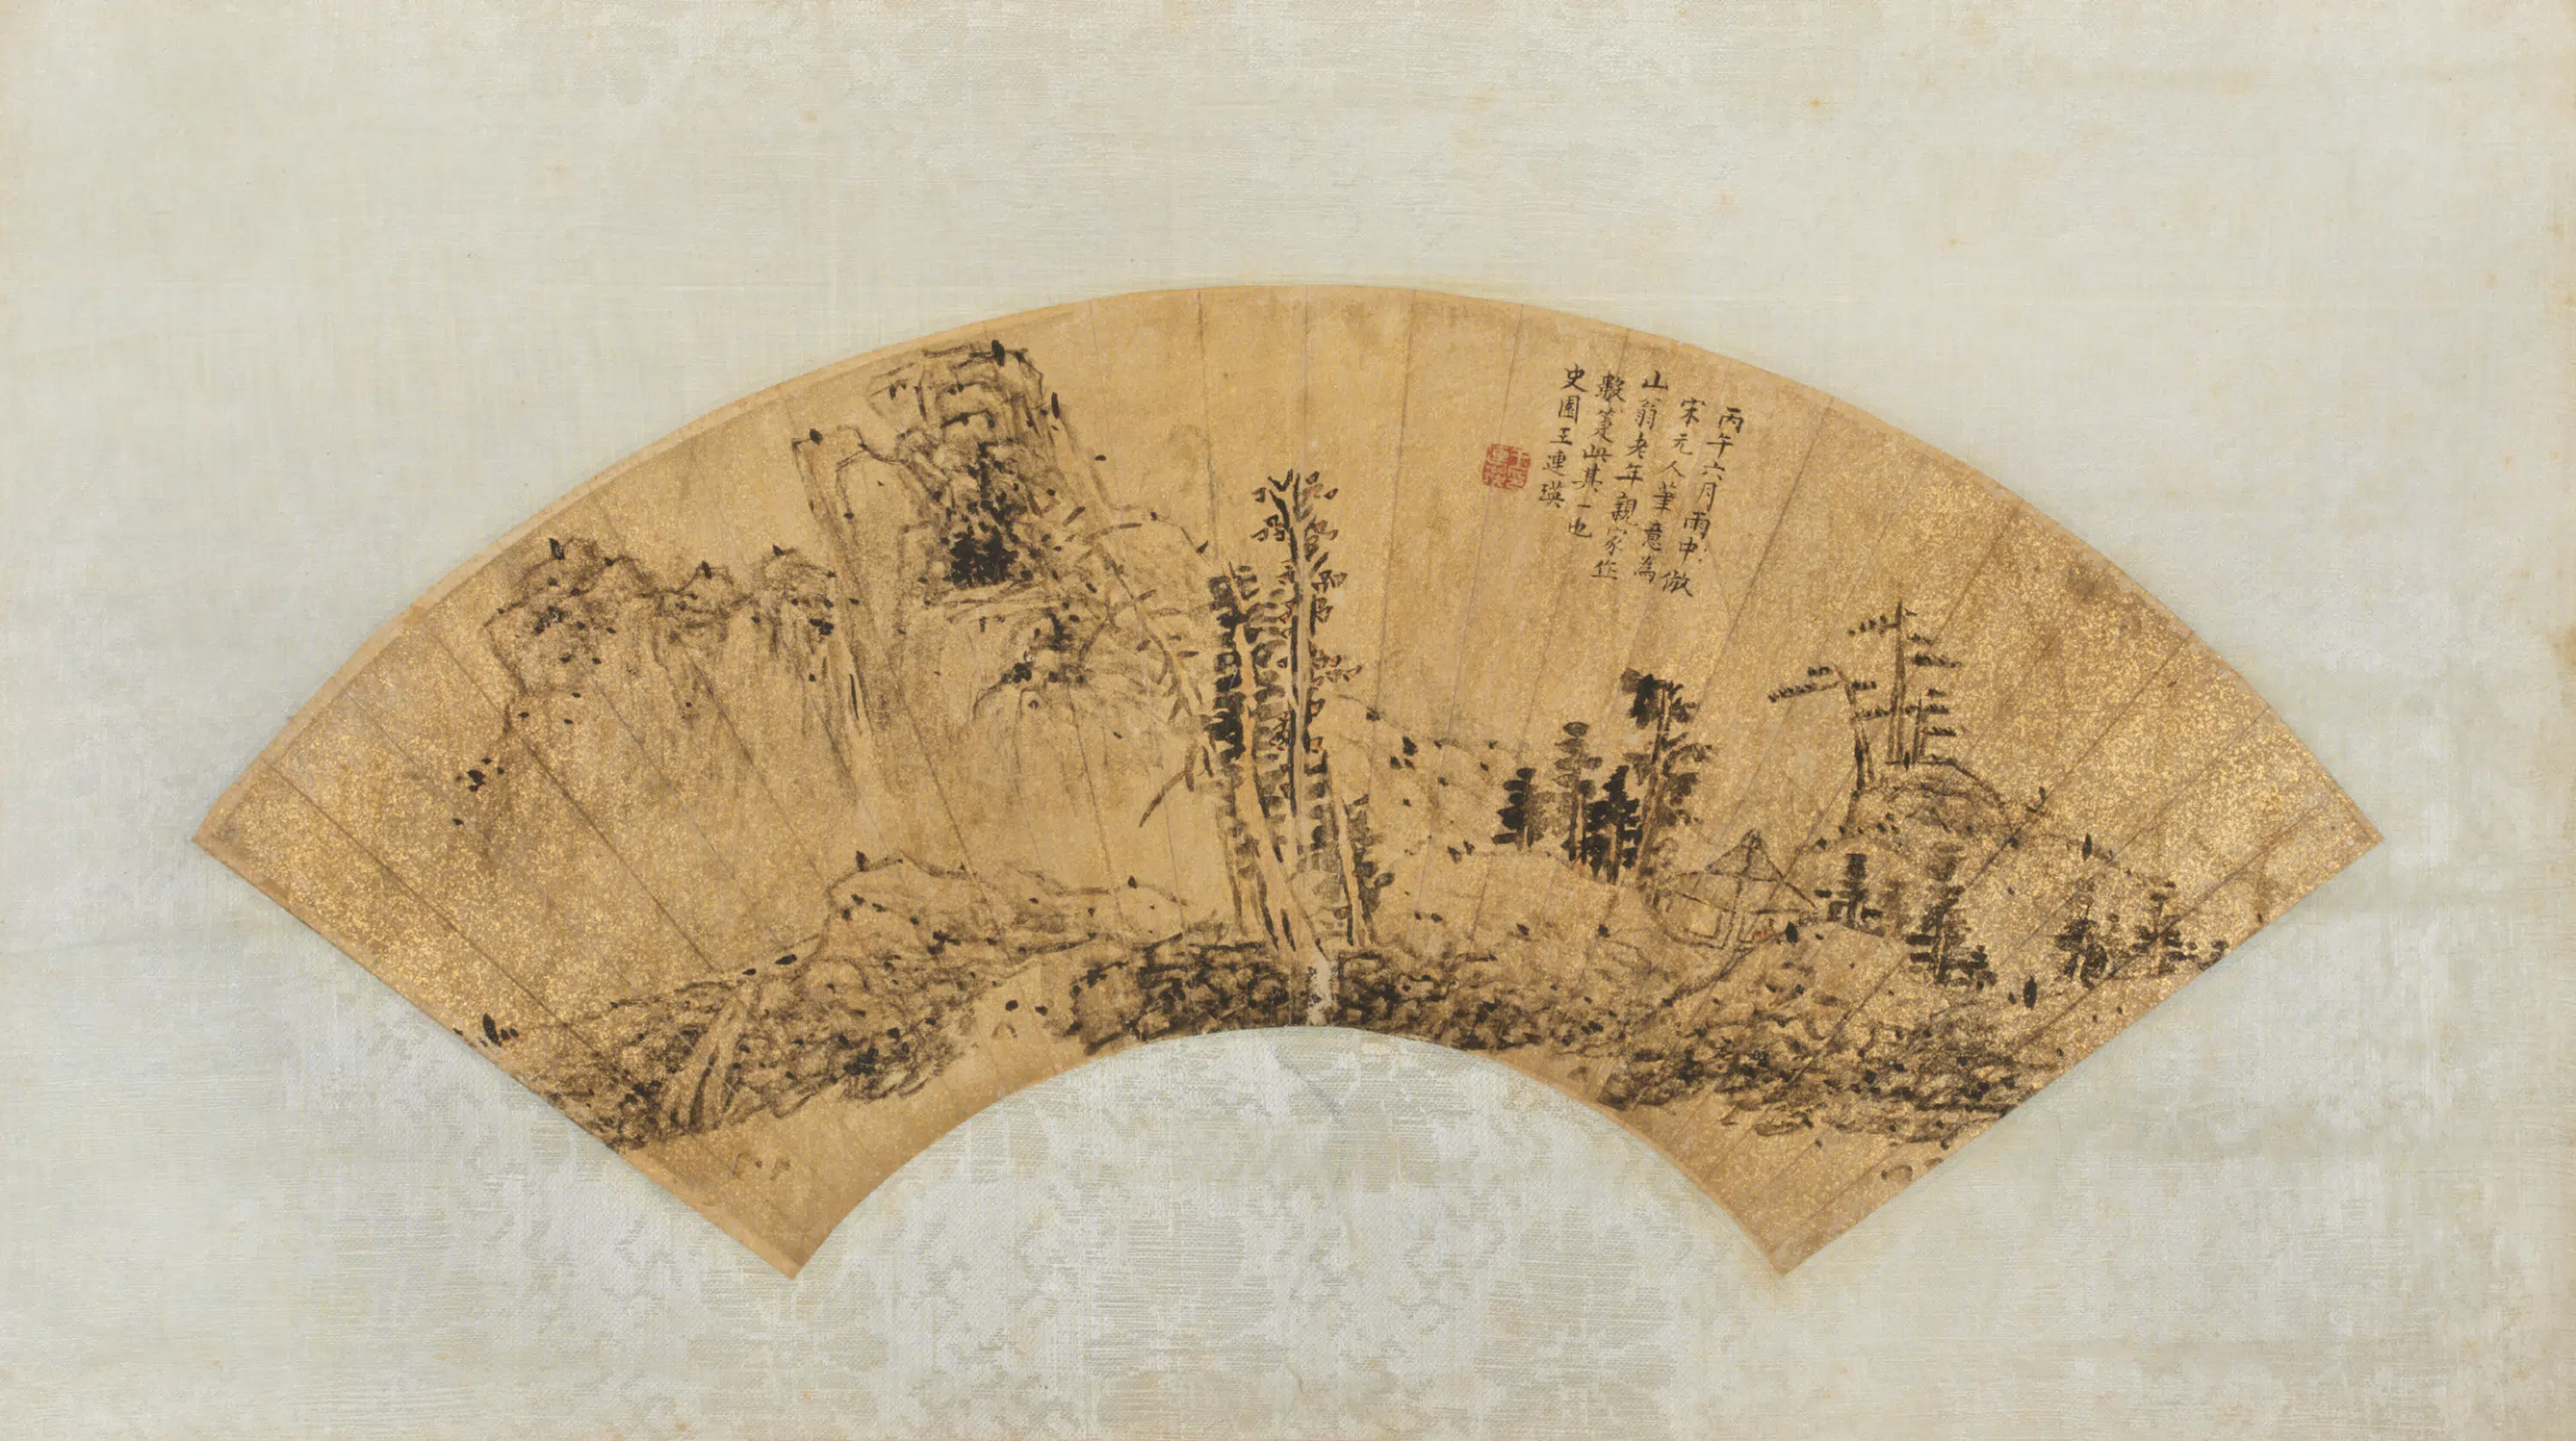 丙午六月雨中倣
宋元人筆意為
山翁老年親家作
數箑此其一也
史園王連瑛